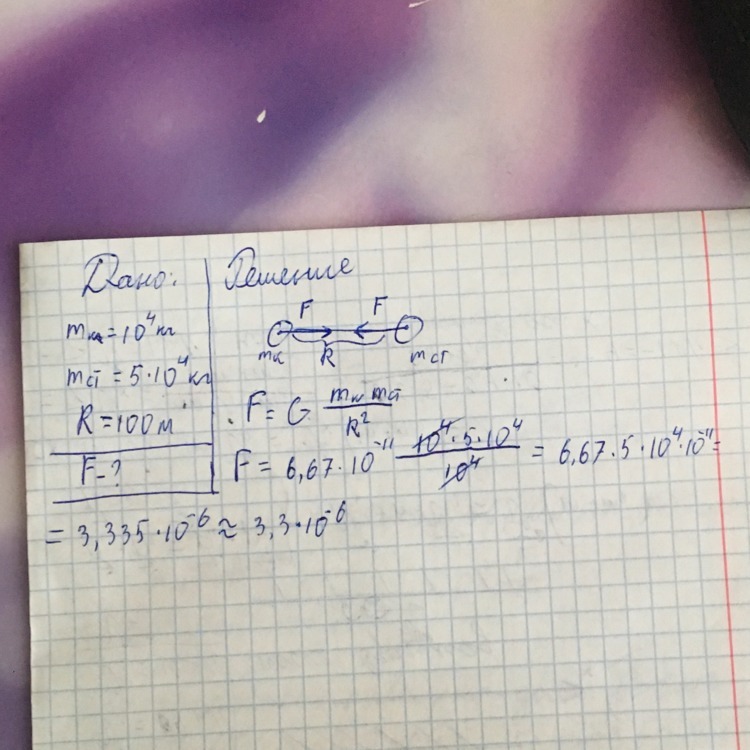 Дано:
mк = 10⁴ кг
mст = 5·10⁴ кг
R = 100 м
F - ?
Решение
F F
mк R mст
F = G mк mст / R²
F = 6,67·10⁻¹¹ 10⁴·5·10⁴ / 10⁴ = 6,67·5·10⁴·10⁻¹¹ =
= 3,335·10⁻⁶ ≈ 3,3·10⁻⁶